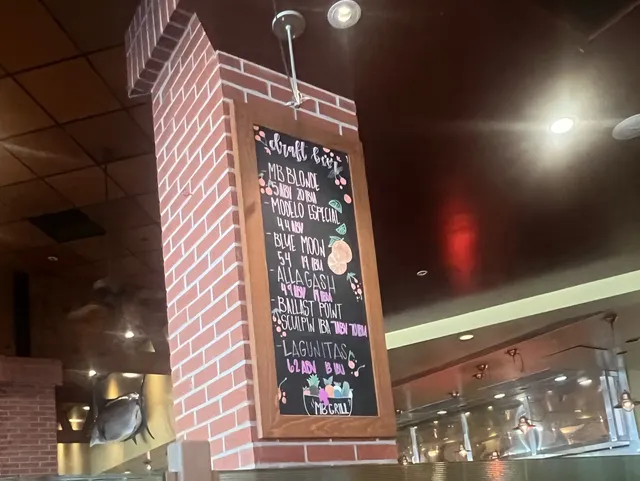 draft beer
MB BLONDE
5 ABV 20 IBU
- MODELO ESPECIAL
4.4 ABV
- BLUE MOON
5.4 19 IBU
- ALLAGASH
ABV 19 IBU
- BALLAST POINT
SCULPIN IPA 7 ABV 70 IBU
- LAGUNITAS
6.2 ABV IBU
MB GRILL